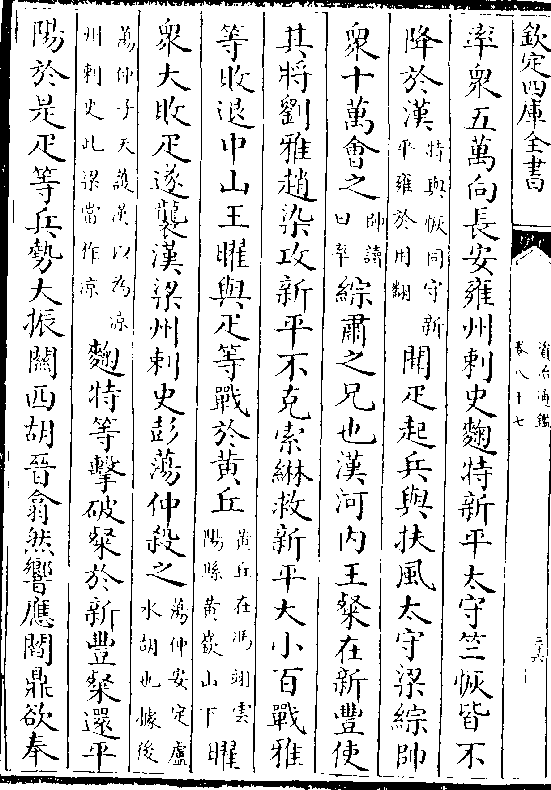 欽定四庫全書
資治通鑑
卷八十七
率衆五萬向長安雍州刺史麴特新平太守竺恢皆不
降於漢特與恢同守新平雍於用翻聞疋起兵與扶風太守梁綜帥
衆十萬會之帥讀曰率綜肅之兄也漢河内王粲在新豐使
其將劉雅趙染攻新平不克索綝救新平大小百戰雅
等敗退中山王曜與疋等戰於黄丘黄丘在馮翊雲陽縣黄嶔山下曜
衆大敗疋遂襲漢梁州刺史彭蕩仲殺之蕩仲安定盧水胡也據後
蕩仲子天護漢以為涼州刺史此梁當作涼麴特等擊破粲於新豐粲還平
陽於是疋等兵勢大振關西胡晉翕然響應閻鼎欲奉